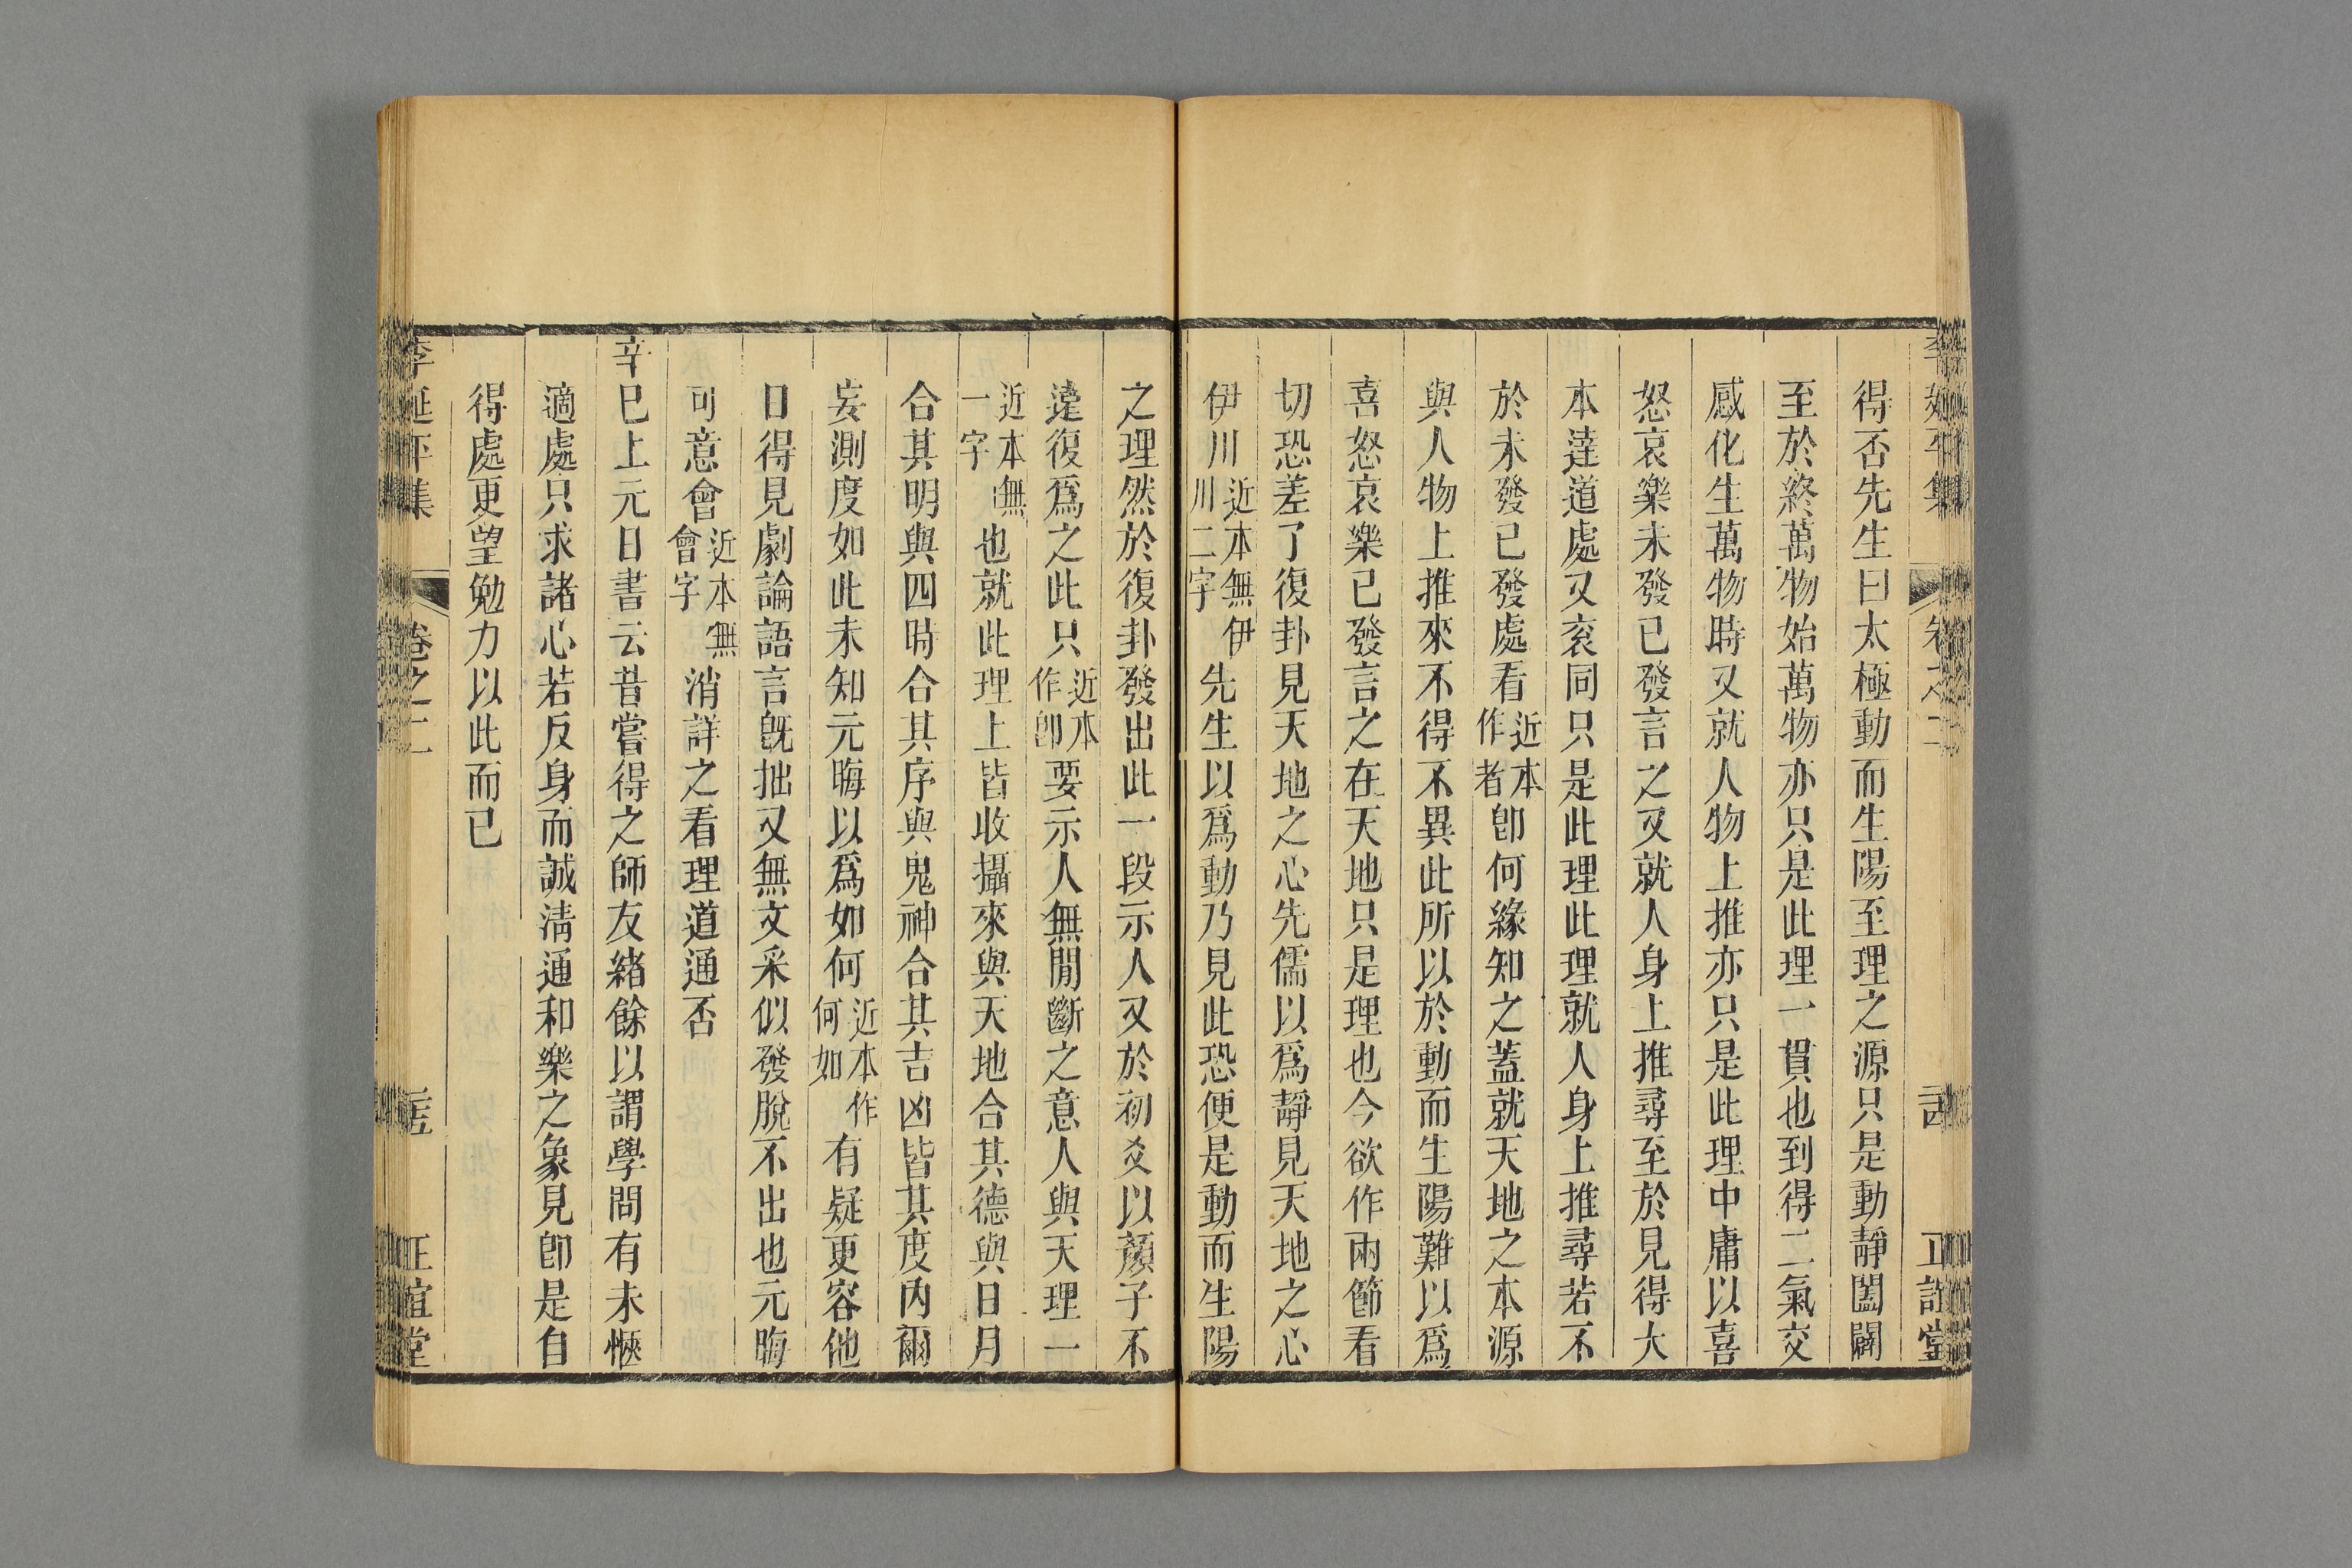 得否先生曰太極動而生陽至理之源只是動靜闔闢
至於終萬物始萬物亦只是此理一貫也到得二氣交
感化生萬物時又就人物上推亦只是此理中庸以喜
怒哀樂未發已發言之又就人身上推尋至於見得大
本達道處又衮同只是此理此理就人身上推尋若不
於未發已發處看近本作者卽何緣知之蓋就天地之本源
與人物上推來不得不異此所以於動而生陽難以爲
喜怒哀樂已發言之在天地只是理也今欲作兩節看
切恐差了復卦見天地之心先儒以爲靜見天地之心
伊川近本無伊川二字先生以爲動乃見此恐便是動而生陽
之理然於復卦發出此一段示人又於初爻以顏子不
遠復爲之此只近本作卽要示人無間斷之意人與天理一
近本無一字也就此理上皆收攝來與天地合其德與日月
合其明與四時合其序與鬼神合其吉凶皆其度內爾
妄測度如此未知元晦以爲如何近本作何如有疑更容他
日得見劇論語言旣拙又無文采似發脫不出也元晦
可意會近本無會字消詳之看理道通否
辛巳上元日書云昔嘗得之師友緒餘以謂學問有未愜
適處只求諸心若反身而誠淸通和樂之象見卽是自
得處更望勉力以此而已
李延平集
卷之二
正誼堂